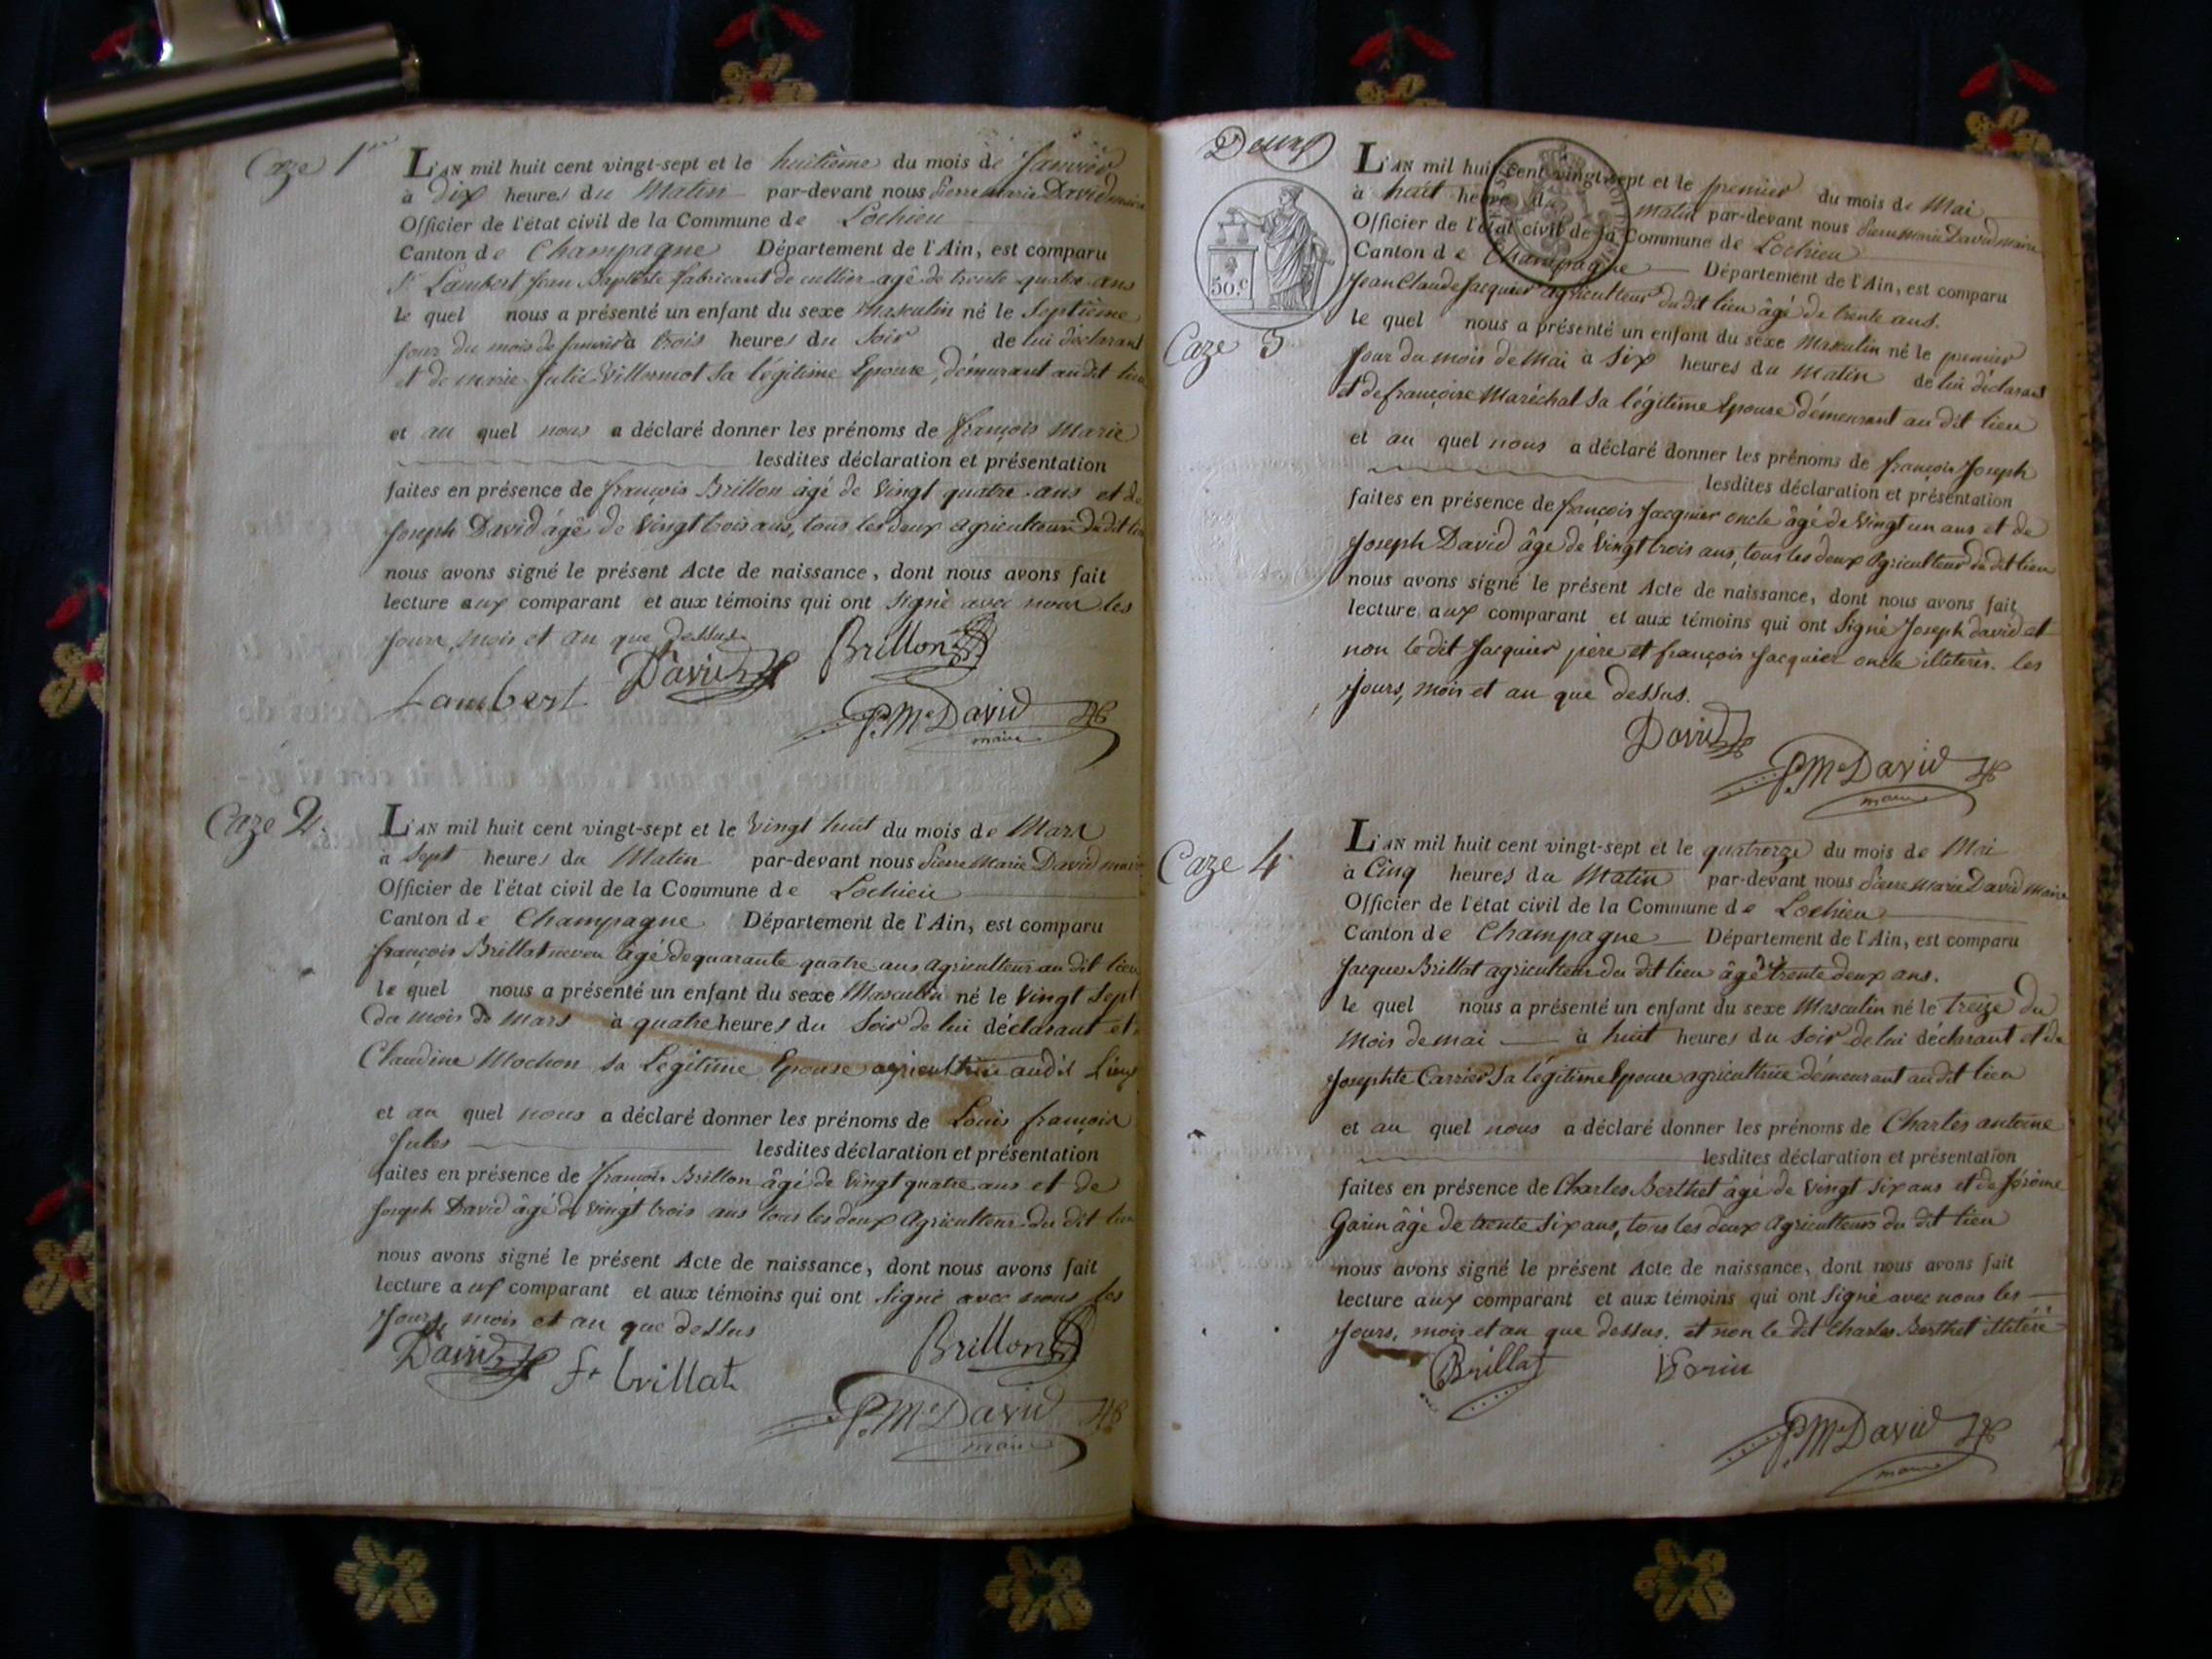 Caze 1er
L'AN mil huit cent vingt-sept et le huitième du mois de Janvier
à dix heures du Matin par-devant nous Pierre Marie David maire
Officier de l'état civil de la Commune de Lochieu
Canton de Champagne Département de l'Ain, est comparu
Sr Lambert Jean Baptiste fabricant de cuillier agé de trente quatre ans
le quel nous a présenté un enfant du sexe Masculin né le Septième
Jour du mois de Janvier à trois heures du Soir de lui déclarant
et de marie Julie Villermot sa légitime Epouse, démurant au dit lieu
et au quel nous a déclaré donner les prénoms de françois Marie
lesdites déclaration et présentation
faites en présence de françois Brillon agé de Vingt quatre ans et de
Joseph David âgé de Vingt trois ans, tous les deux agriculteurs du dit lieu
nous avons signé le présent Acte de naissance, dont nous avons fait
lecture aux comparant et aux témoins qui ont signé avec nous les
Jours, mois et an que dessus
Lambert David Brillon
P. Me David
maire
Caze 2.
L'AN mil huit cent vingt-sept et le Vingt huit du mois de Mars
à Sept heures du Matin par-devant nous Pierre Marie David maire
Officier de l'état civil de la Commune de Lochieu
Canton de Champagne Département de l'Ain, est comparu
françois Brillat neveu âgé de quarante quatre ans agriculteur au dit lieu
le quel nous a présenté un enfant du sexe Masculin né le Vingt Sept
du mois de Mars à quatre heures du Soir de lui déclarant et
Claudine Mochon sa Légitime Epouse agricultrice audit Lieu
et au quel nous a déclaré donner les prénoms de Louis françois
Jules lesdites déclaration et présentation
faites en présence de françois Brillon âgé de Vingt quatre ans et de
Joseph David âgé de Vingt trois ans tous les deux Agriculteurs du dit lieu
nous avons signé le présent Acte de naissance, dont nous avons fait
lecture aux comparant et aux témoins qui ont signé avec nous les
Jours, mois et an que dessus
David fs brillat Brillon
P. Me David
maire
Deux
50.c
Caze 3
L'AN mil huit cent vingt-sept et le premier du mois de Mai
à huit heures du matin par-devant nous Pierre Marie David maire
Officier de l'état civil de la Commune de Lochieu
Canton de Champagne Département de l'Ain, est comparu
Jean Claude Jacquier agriculteur du dit lieu âgé de trente ans.
le quel nous a présenté un enfant du sexe Masculin né le premier
Jour du mois de Mai à Six heures du Matin de lui déclarant
et de françoise Maréchal sa légitime Epouse démeurant au dit lieu
et au quel nous a déclaré donner les prénoms de françois Joseph
lesdites déclaration et présentation
faites en présence de françois Jacquier oncle âgé de Vingt un ans et de
Joseph David âgé de Vingt trois ans, tous les deux Agriculteurs du dit lieu
nous avons signé le présent Acte de naissance, dont nous avons fait
lecture aux comparant et aux témoins qui ont Signé Joseph david et
non le dit Jacquier père et françois Jacquier oncle illiterés. les
Jours, mois et an que dessus.
David
P. Me David
maire
Caze 4.
L'AN mil huit cent vingt-sept et le quatrorze du mois de Mai
à Cinq heures du Matin par-devant nous Pierre Marie David Maire
Officier de l'état civil de la Commune de Lochieu
Canton de Champagne Département de l'Ain, est comparu
Jacques Brillat agriculteur du dit lieu âgé de trente deux ans.
le quel nous a présenté un enfant du sexe Masculin né le treize du
Mois de mai à huit heures du Soir de lui déclarant et de
Josephte Carrier sa légitime Epouse agricultrice démeurant au dit lieu
et au quel nous a déclaré donner les prénoms de Charles antoine
lesdites déclaration et présentation
faites en présence de Charles Berthet âgé de Vingt Six ans et de Jérôme
Garin âgé de trente Six ans, tous les deux Agriculteurs du dit lieu
nous avons signé le présent Acte de naissance, dont nous avons fait
lecture aux comparant et aux témoins qui ont Signé avec nous les
Jours, mois et an que dessus. et non le dit Charles Berthet illiteré
Brillat
P. Me David
maire